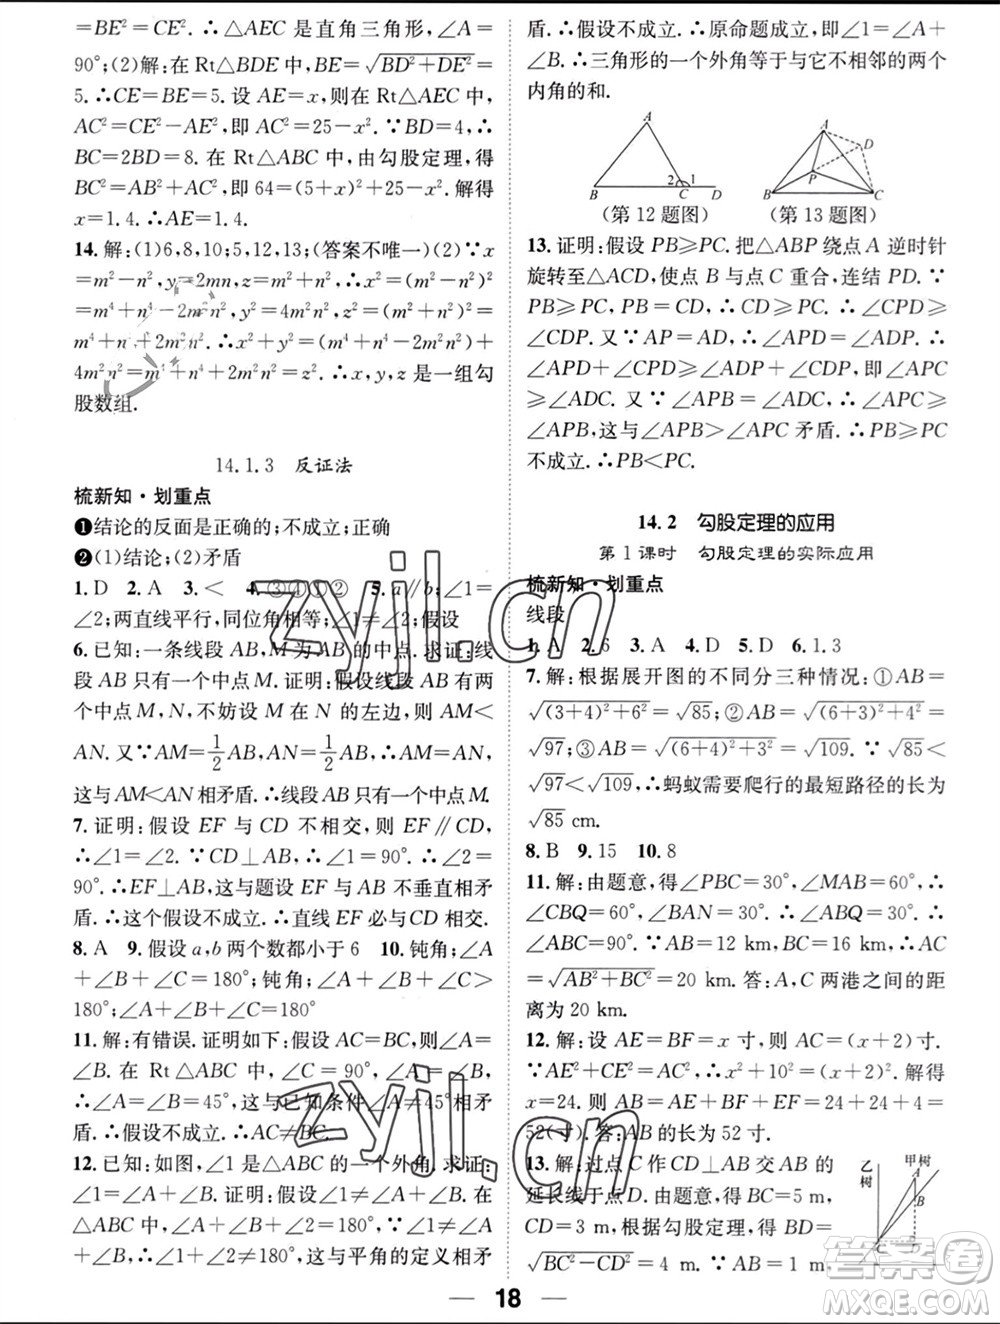 =BE²=CE². ∴△AEC 是直角三角形,∠A=
90°;(2)解:在 Rt△BDE 中,BE=√(BD²+DE²)=
5. ∴CE=BE=5. 设 AE=x,则在 Rt△AEC 中,
AC²=CE²-AE²,即 AC²=25-x². ∵BD=4,∴
BC=2BD=8. 在 Rt△ABC 中,由勾股定理,得
BC²=AB²+AC²,即 64=(5+x)²+25-x². 解得
x=1.4. ∴AE=1.4.
14. 解:(1)6,8,10;5,12,13;(答案不唯一)(2)∵x
=m²-n²,y=2mn,z=m²+n²,∴x²=(m²-n²)²=
m⁴+n⁴-2m²n²,y²=4m²n²,z²=(m²+n²)²=
m⁴+n⁴+2m²n². ∴x²+y²=(m⁴+n⁴-2m²n²)+
4m²n²=m⁴+n⁴+2m²n²=z². ∴x,y,z 是一组勾
股数组.
14.1.3 反证法
梳新知·划重点
❶结论的反面是正确的;不成立;正确
❷(1)结论;(2)矛盾
1. D 2. A 3. < 4. ③④①② 5. a∥b;∠1=
∠2;两直线平行,同位角相等;∠1≠∠2;假设
6. 已知:一条线段 AB,M 为 AB 的中点. 求证:线
段 AB 只有一个中点 M. 证明:假设线段 AB 有两
个中点 M,N,不妨设 M 在 N 的左边,则 AM<
AN. 又∵AM=1/2AB,AN=1/2AB,∴AM=AN,
这与 AM<AN 相矛盾. ∴线段 AB 只有一个中点 M.
7. 证明:假设 EF 与 CD 不相交,则 EF∥CD,
∴∠1=∠2. ∵CD⊥AB,∴∠1=90°. ∴∠2=
90°. ∴EF⊥AB,这与题设 EF 与 AB 不垂直相矛
盾. ∴这个假设不成立. ∴直线 EF 必与 CD 相交.
8. A 9. 假设 a,b 两个数都小于 6 10. 钝角;∠A
+∠B+∠C=180°;钝角;∠A+∠B+∠C>
180°;∠A+∠B+∠C=180°
11. 解:有错误. 证明如下:假设 AC=BC,则∠A=
∠B. 在 Rt△ABC 中,∠C=90°,∴∠A+∠B=
90°,∴∠A=∠B=45°,这与已知条件∠A≠45°相矛
盾. ∴假设不成立. ∴AC≠BC.
12. 已知:如图,∠1 是△ABC 的一个外角. 求证:
∠1=∠A+∠B. 证明:假设∠1≠∠A+∠B. 在
△ABC 中,∠A+∠B+∠2=180°,∴∠A+∠B=
180°-∠2. ∴∠1+∠2≠180°,这与平角的定义相矛
盾. ∴假设不成立. ∴原命题成立,即∠1=∠A+
∠B. ∴三角形的一个外角等于与它不相邻的两个
内角的和.
A
2 1
B C D
(第 12 题图)
A
D
P
B C
(第 13 题图)
13. 证明:假设 PB≥PC. 把△ABP 绕点 A 逆时针
旋转至△ACD,使点 B 与点 C 重合,连结 PD. ∵
PB≥PC,PB=CD,∴CD≥PC,∴∠CPD≥
∠CDP. 又∵AP=AD,∴∠APD=∠ADP,
∴∠APD+∠CPD≥∠ADP+∠CDP,即∠APC
≥∠ADC. 又∵∠APB=∠ADC,∴∠APC≥
∠APB,这与∠APB>∠APC 矛盾. ∴PB≥PC
不成立. ∴PB<PC.
14.2 勾股定理的应用
第 1 课时 勾股定理的实际应用
梳新知·划重点
线段
1. A 2. 6 3. A 4. D 5. D 6. 1.3
7. 解:根据展开图的不同分三种情况:①AB=
√((3+4)²+6²)=√85;②AB=√((6+3)²+4²)=
√97;③AB=√((6+4)²+3²)=√109. ∵√85<
√97<√109,∴蚂蚁需要爬行的最短路径的长为
√85 cm.
8. B 9. 15 10. 8
11. 解:由题意,得∠PBC=30°,∠MAB=60°,
∴∠CBQ=60°. ∵∠MAB=60°,∴∠ABQ=30°,
∴∠ABC=90°. ∵AB=12 km,BC=16 km,∴AC
=√(AB²+BC²)=20 km. 答:A,C 两港之间的距
离为 20 km.
12. 解:设 AE=BF=x 寸,则 AC=(x+2)寸.
∵AE²+CE²=AC²,∴x²+10²=(x+2)². 解得
x=24. 则 AB=AE+BF+EF=24+24+4=
52(寸). 答:AB 的长为 52 寸.
13. 解:过点 C 作 CD⊥AB 交 AB 的
延长线于点 D. 由题意,得 BC=5 m,
CD=3 m,根据勾股定理,得 BD=
√(BC²-CD²)=4 m. ∵AB=1 m,
乙树
甲树
A
B
C D
18
zyjl.cn
zyjl.cn
答案圈
MXQE.COM